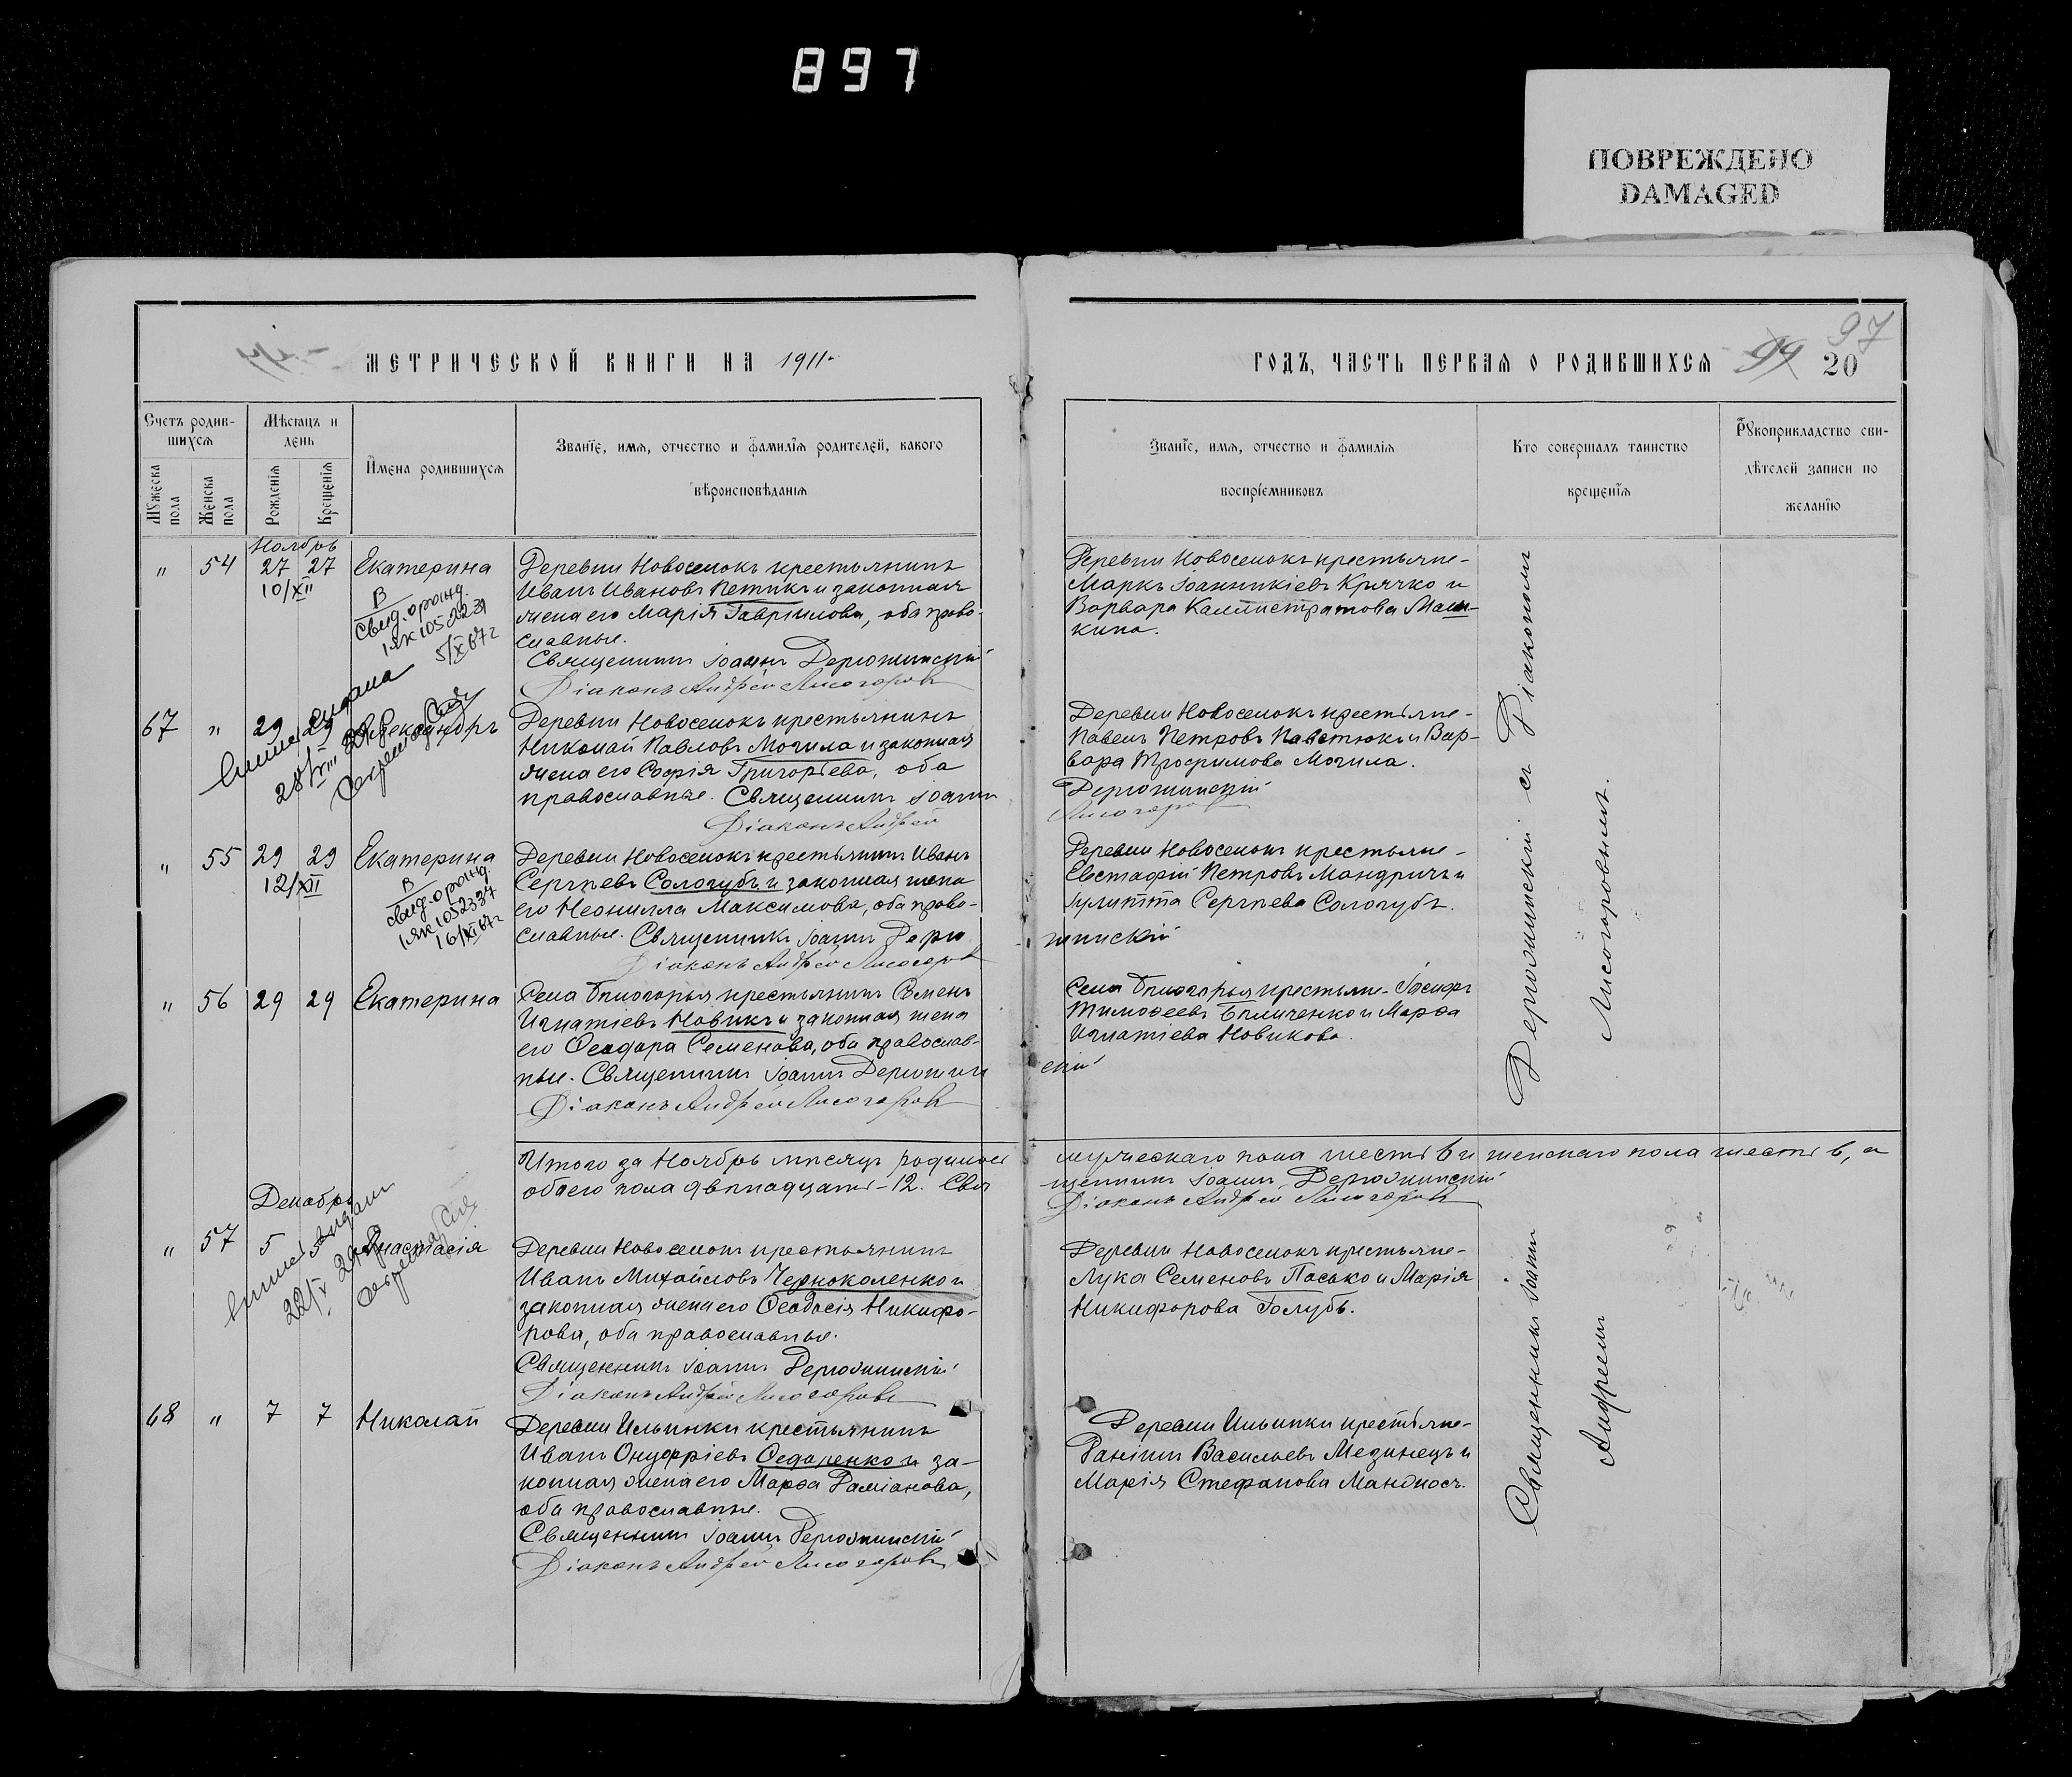 897
ПОВРЕЖДЕНО
DAMAGED
МЕТРИЧЕСКОЙ КНИГИ НА 1911
ГОДЪ, ЧАСТЬ ПЕРВАЯ О РОДИВШИХСЯ 97
20
Счетъ родив-
шихся
Мѣсяцъ и
день
Мужеска
пола
Женска
пола
Рожденія
Крещенія
Имена родившихся
Званіе, имя, отчество и фамилія родителей, какого
вѣроисповѣданія
Званіе, имя, отчество и фамилія
воспріемниковъ
Кто совершалъ таинство
крещенія
Рукоприкладство сви-
дѣтелей записи по
желанію
Ноябрь
" 54 27 27 Екатерина
10/XII
В
свид. о рожд.
5/X 67 г
Деревни Новоселокъ крестьянинъ
Иванъ Ивановъ Петикъ и законная
жена его Марія Гавріилова, оба право-
славные.
Священникъ Іоаннъ Дерюжинскій
Діаконъ Андрей Лисогоровъ
Деревни Новоселокъ крестьяне-
Маркъ Іоанникіевъ Крячко и
Варвара Каллистратова Маш-
кина.
67 " 29 29 Александръ
Деревни Новоселокъ крестьянинъ
Николай Павловъ Могила и законная
жена его Софія Григорьева, оба
православные. Священникъ Іоаннъ
Діаконъ Андрей
Деревни Новоселокъ крестьяне-
Павелъ Петровъ Павлюкъ и Вар-
вара Трофимова Могила.
Дерюжинскій
Лисогоровъ
" 55 29 29 Екатерина
12/XII
В
свид. о рожд.
16/XI 67 г
Деревни Новоселокъ крестьянинъ Иванъ
Сергѣевъ Сологубъ и законная жена
его Неонилла Максимова, оба право-
славные. Священникъ Іоаннъ Дерю
Діаконъ Андрей Лисогоровъ
Деревни Новоселокъ крестьяне-
Евстафій Петровъ Мандричъ и
Іулитта Сергѣева Сологубъ.
жинскій
" 56 29 29 Екатерина
Села Бѣлогорья крестьянинъ Семенъ
Игнатіевъ Новикъ и законная жена
его Ѳеодора Семенова, оба православ-
ные. Священникъ Іоаннъ Дерюжин
Діаконъ Андрей Лисогоровъ
Села Бѣлогорья крестьяне- Іосифъ
Тимоѳеевъ Бѣличенко и Марѳа
Игнатіева Новикова.
скій
Дерюжинскій съ Діакономъ
Лисогоровымъ.
Итого за Ноябрь мѣсяцъ родилось мужескаго пола шесть 6 и женскаго пола шесть 6, а
обоего пола двѣнадцать-12. Свя щенникъ Іоаннъ Дерюжинскій
Діаконъ Андрей Лисогоровъ
Декабрь
" 57 5 5 Анастасія
Деревни Новоселокъ крестьянинъ
Иванъ Михайловъ Черноколенко и
законная жена его Ѳеодосія Никифо-
рова, оба православные.
Священникъ Іоаннъ Дерюжинскій
Діаконъ Андрей Лисогоровъ
Деревни Новоселокъ крестьяне-
Лука Семеновъ Пасько и Марія
Никифорова Голубь.
68 " 7 7 Николай
Деревни Ильинки крестьянинъ
Иванъ Онуфріевъ Ѳедоренко и за-
конная жена его Марѳа Даміанова,
оба православные.
Священникъ Іоаннъ Дерюжинскій
Діаконъ Андрей Лисогоровъ
Деревни Ильинки крестьяне-
Даніилъ Васильевъ Мединецъ и
Марія Стефанова
Священникъ Іоаннъ
Андреемъ